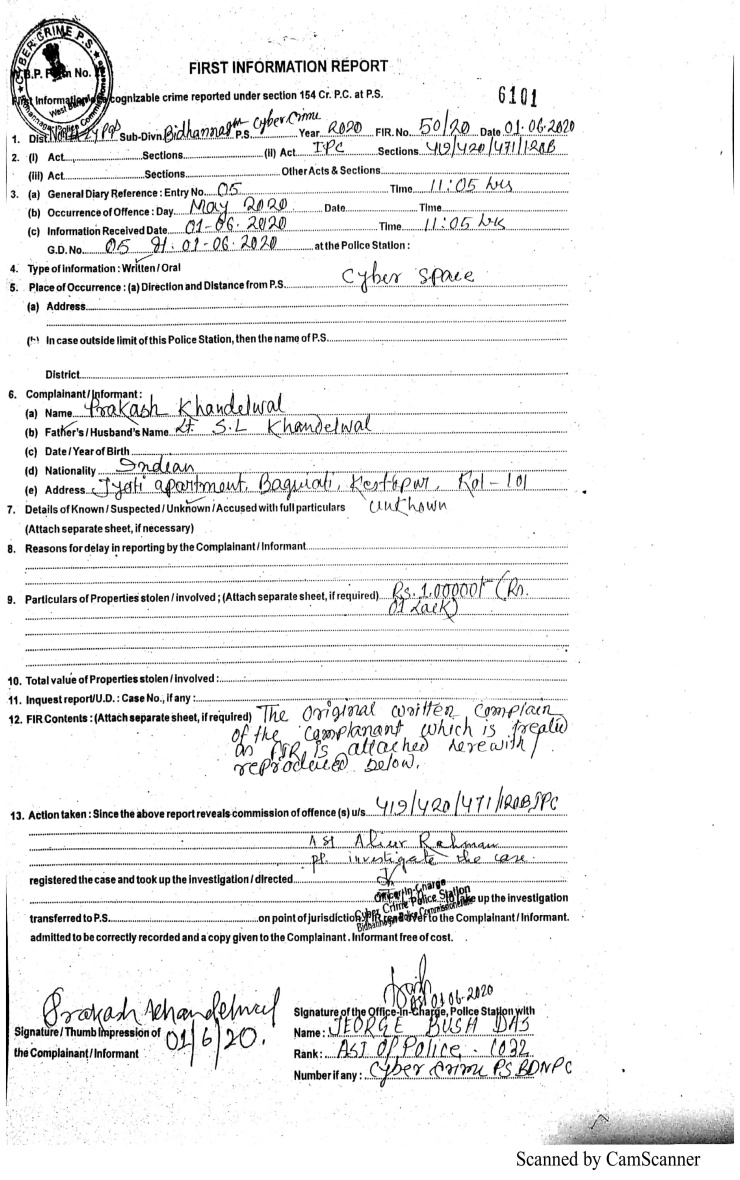 CYBER CRIME P.S.
West Bengal
.B.P. Form No.
FIRST INFORMATION REPORT
First Information cognizable crime reported under section 154 Cr. P.C. at P.S.
6101
1. Dist. Sub-Divn. Bidhannagar P.S. Cyber Crime Year 2020 FIR. No. 50/20 Date 01.06.2020
2. (I) Act Sections (II) Act IPC Sections 419/420/471/120B
(III) Act Sections Other Acts & Sections
3. (a) General Diary Reference : Entry No. 05 Time 11:05 hrs
(b) Occurrence of Offence : Day May 2020 Date Time
(c) Information Received Date 01-06-2020 Time 11:05 hrs
G.D. No. 05 dt. 01-06-2020 at the Police Station :
4. Type of Information : Written / Oral
5. Place of Occurrence : (a) Direction and Distance from P.S. Cyber Space
(a) Address
In case outside limit of this Police Station, then the name of P.S.
District
6. Complainant / Informant :
(a) Name Prakash Khandelwal
(b) Father's / Husband's Name Lt. S.L Khandelwal
(c) Date / Year of Birth
(d) Nationality Indian
(e) Address Jyoti apartment, Baguiati, Kestopur, Kol - 101
7. Details of Known / Suspected / Unknown / Accused with full particulars Unknown
(Attach separate sheet, if necessary)
8. Reasons for delay in reporting by the Complainant / Informant
9. Particulars of Properties stolen / involved ; (Attach separate sheet, if required) Rs. 1.00000/- (Rs.
01 Lack)
10. Total value of Properties stolen / involved :
11. Inquest report/U.D. : Case No., if any :
12. FIR Contents : (Attach separate sheet, if required) The original written complain
of the complanant which is treated
as FIR is attached herewith /
reproduced below.
13. Action taken : Since the above report reveals commission of offence (s) u/s 419/420/471/120B IPC
ASI Aliur Rahman
pl. investigate the case.
registered the case and took up the investigation / directed
Officer-In-Charge
Cyber Crime Police Station
Bidhannagar Police Commissionerate
to take up the investigation
transferred to P.S. on point of jurisdiction. FIR read over to the Complainant / Informant.
admitted to be correctly recorded and a copy given to the Complainant. Informant free of cost.
Prakash Khandelwal
01/6/20.
Signature / Thumb Impression of
the Complainant / Informant
ASI 01.06.2020
Signature of the Office-In-Charge, Police Station with
Name : JEORGE BUSH DAS
Rank : ASI Of Police - 1032
Number if any : Cyber Crime PS BDNPC
Scanned by CamScanner